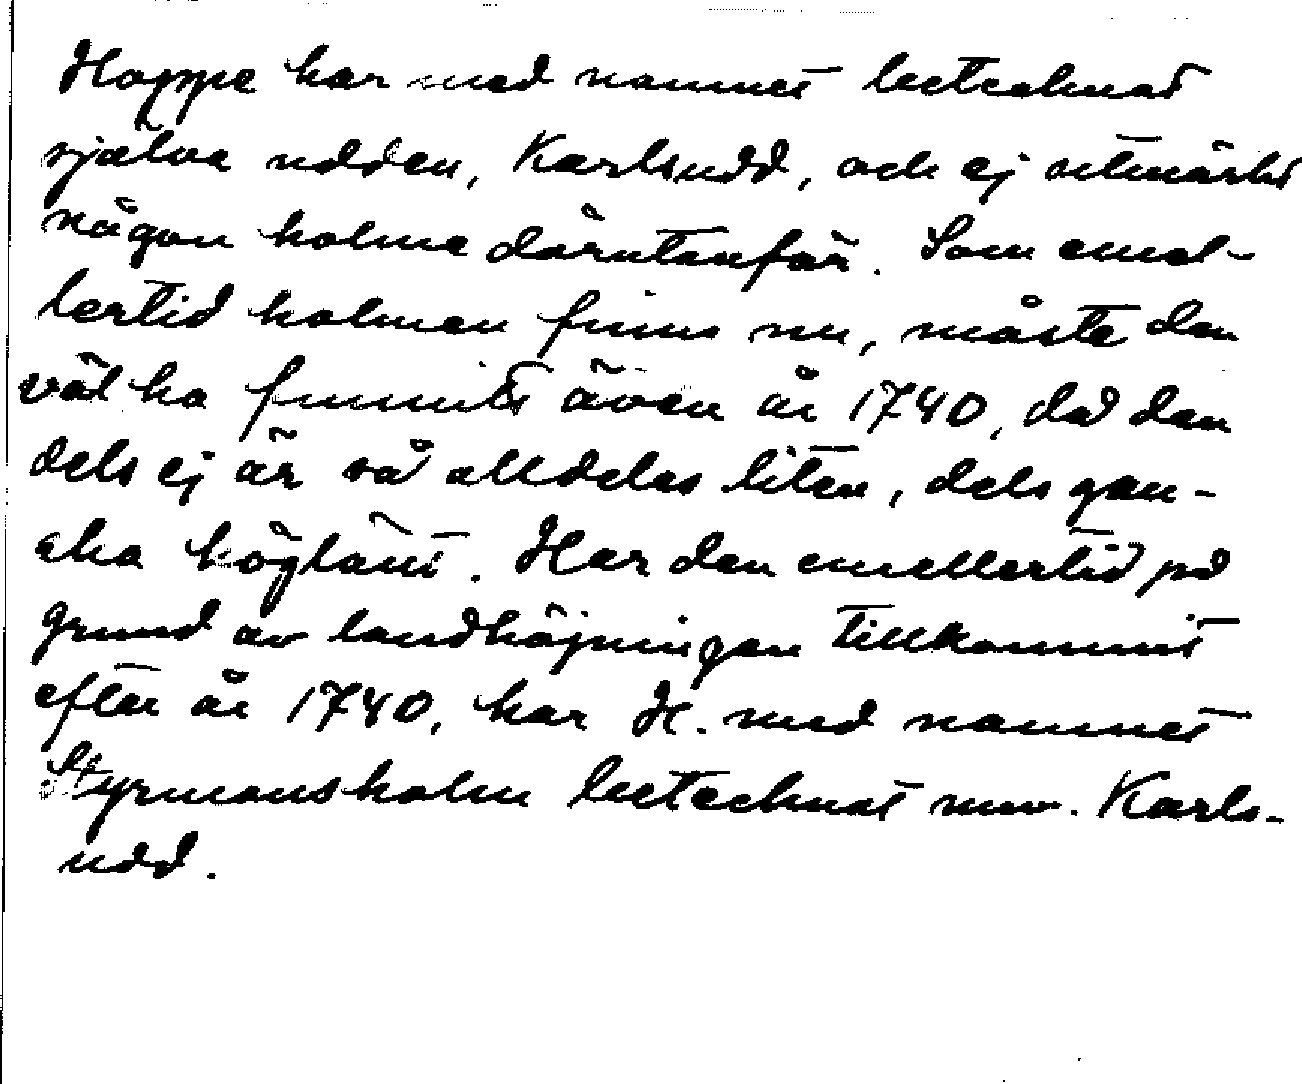 Hoppe har med namnet betecknat
själva udden, Karlsudd, och ej utmärkt
någon holme därutanför. Som emel-
lertid holmen finns nu, måste den
väl ha funnits även år 1740, då den
dels ej är så alldeles liten, dels gan-
ska höglänt. Har den emellertid på
grund av landhöjningen tillkommit
efter år 1740, har H. med namnet
Styrmansholm betecknat nuv. Karls-
udd.